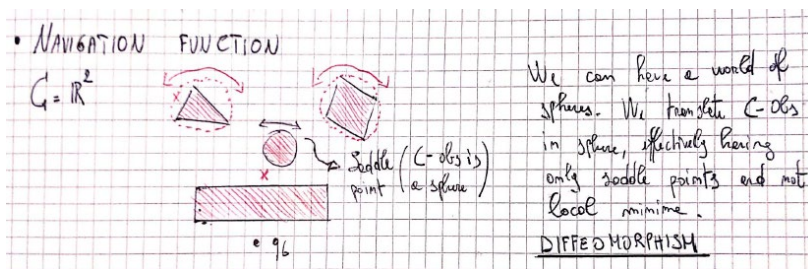 • NAVIGATION FUNCTION
C = ℝ²
Saddle point (C-obs is a sphere)
• q_b
We can have a world of
spheres. We translate C-obs
in sphere, effectively having
only saddle points and not
local minima.
DIFFEOMORPHISM